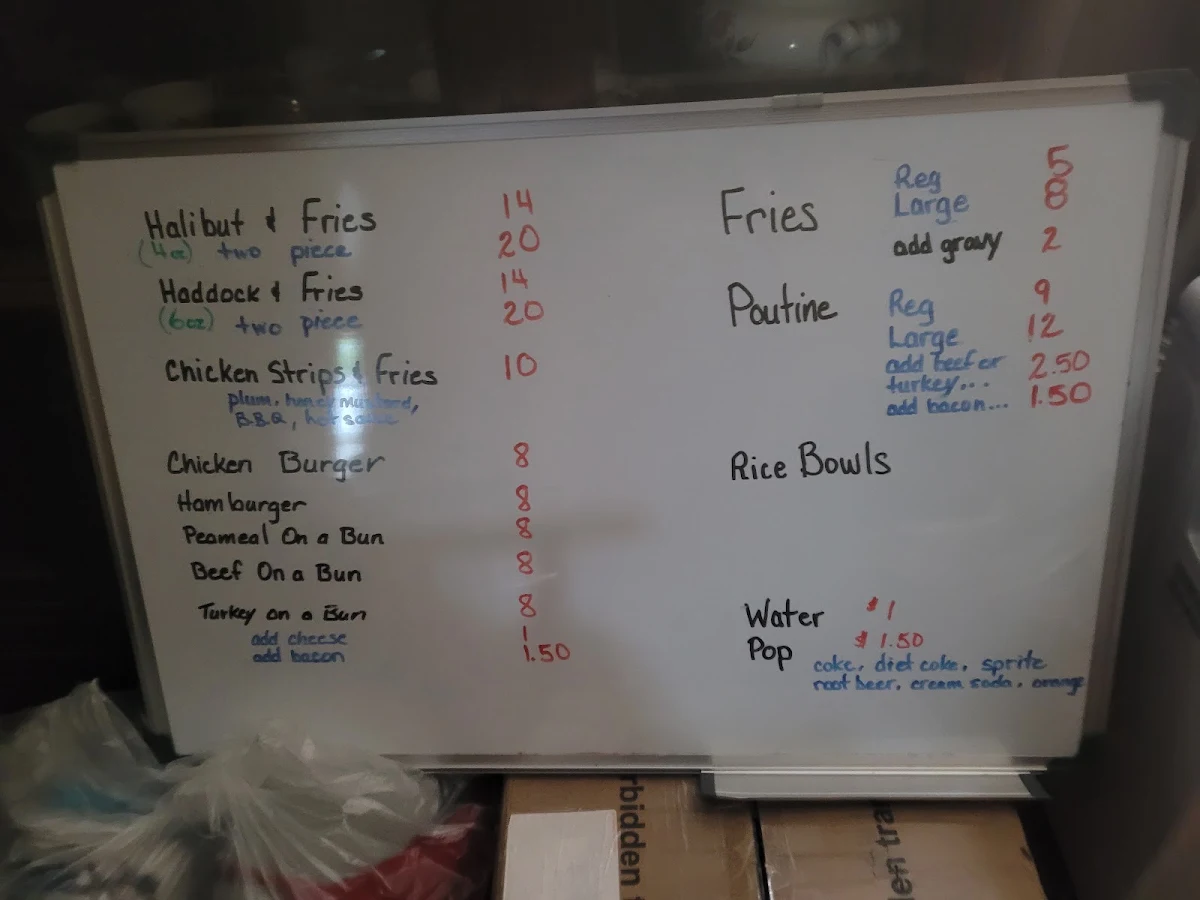 Halibut & Fries 14
(4oz) two piece 20
Haddock & Fries 14
(6oz) two piece 20
Chicken Strips & Fries 10
plum, honey mustard,
B.B.Q, hot sauce
Chicken Burger 8
Hamburger 8
Peameal On a Bun 8
Beef On a Bun 8
Turkey on a Bun 8
add cheese 1
add bacon 1.50
Fries Reg 5
Large 8
add gravy 2
Poutine Reg 9
Large 12
add beef or 2.50
turkey...
add bacon... 1.50
Rice Bowls
Water $1
Pop $1.50
coke, diet coke, sprite
root beer, cream soda, orange
rbidden
en tra